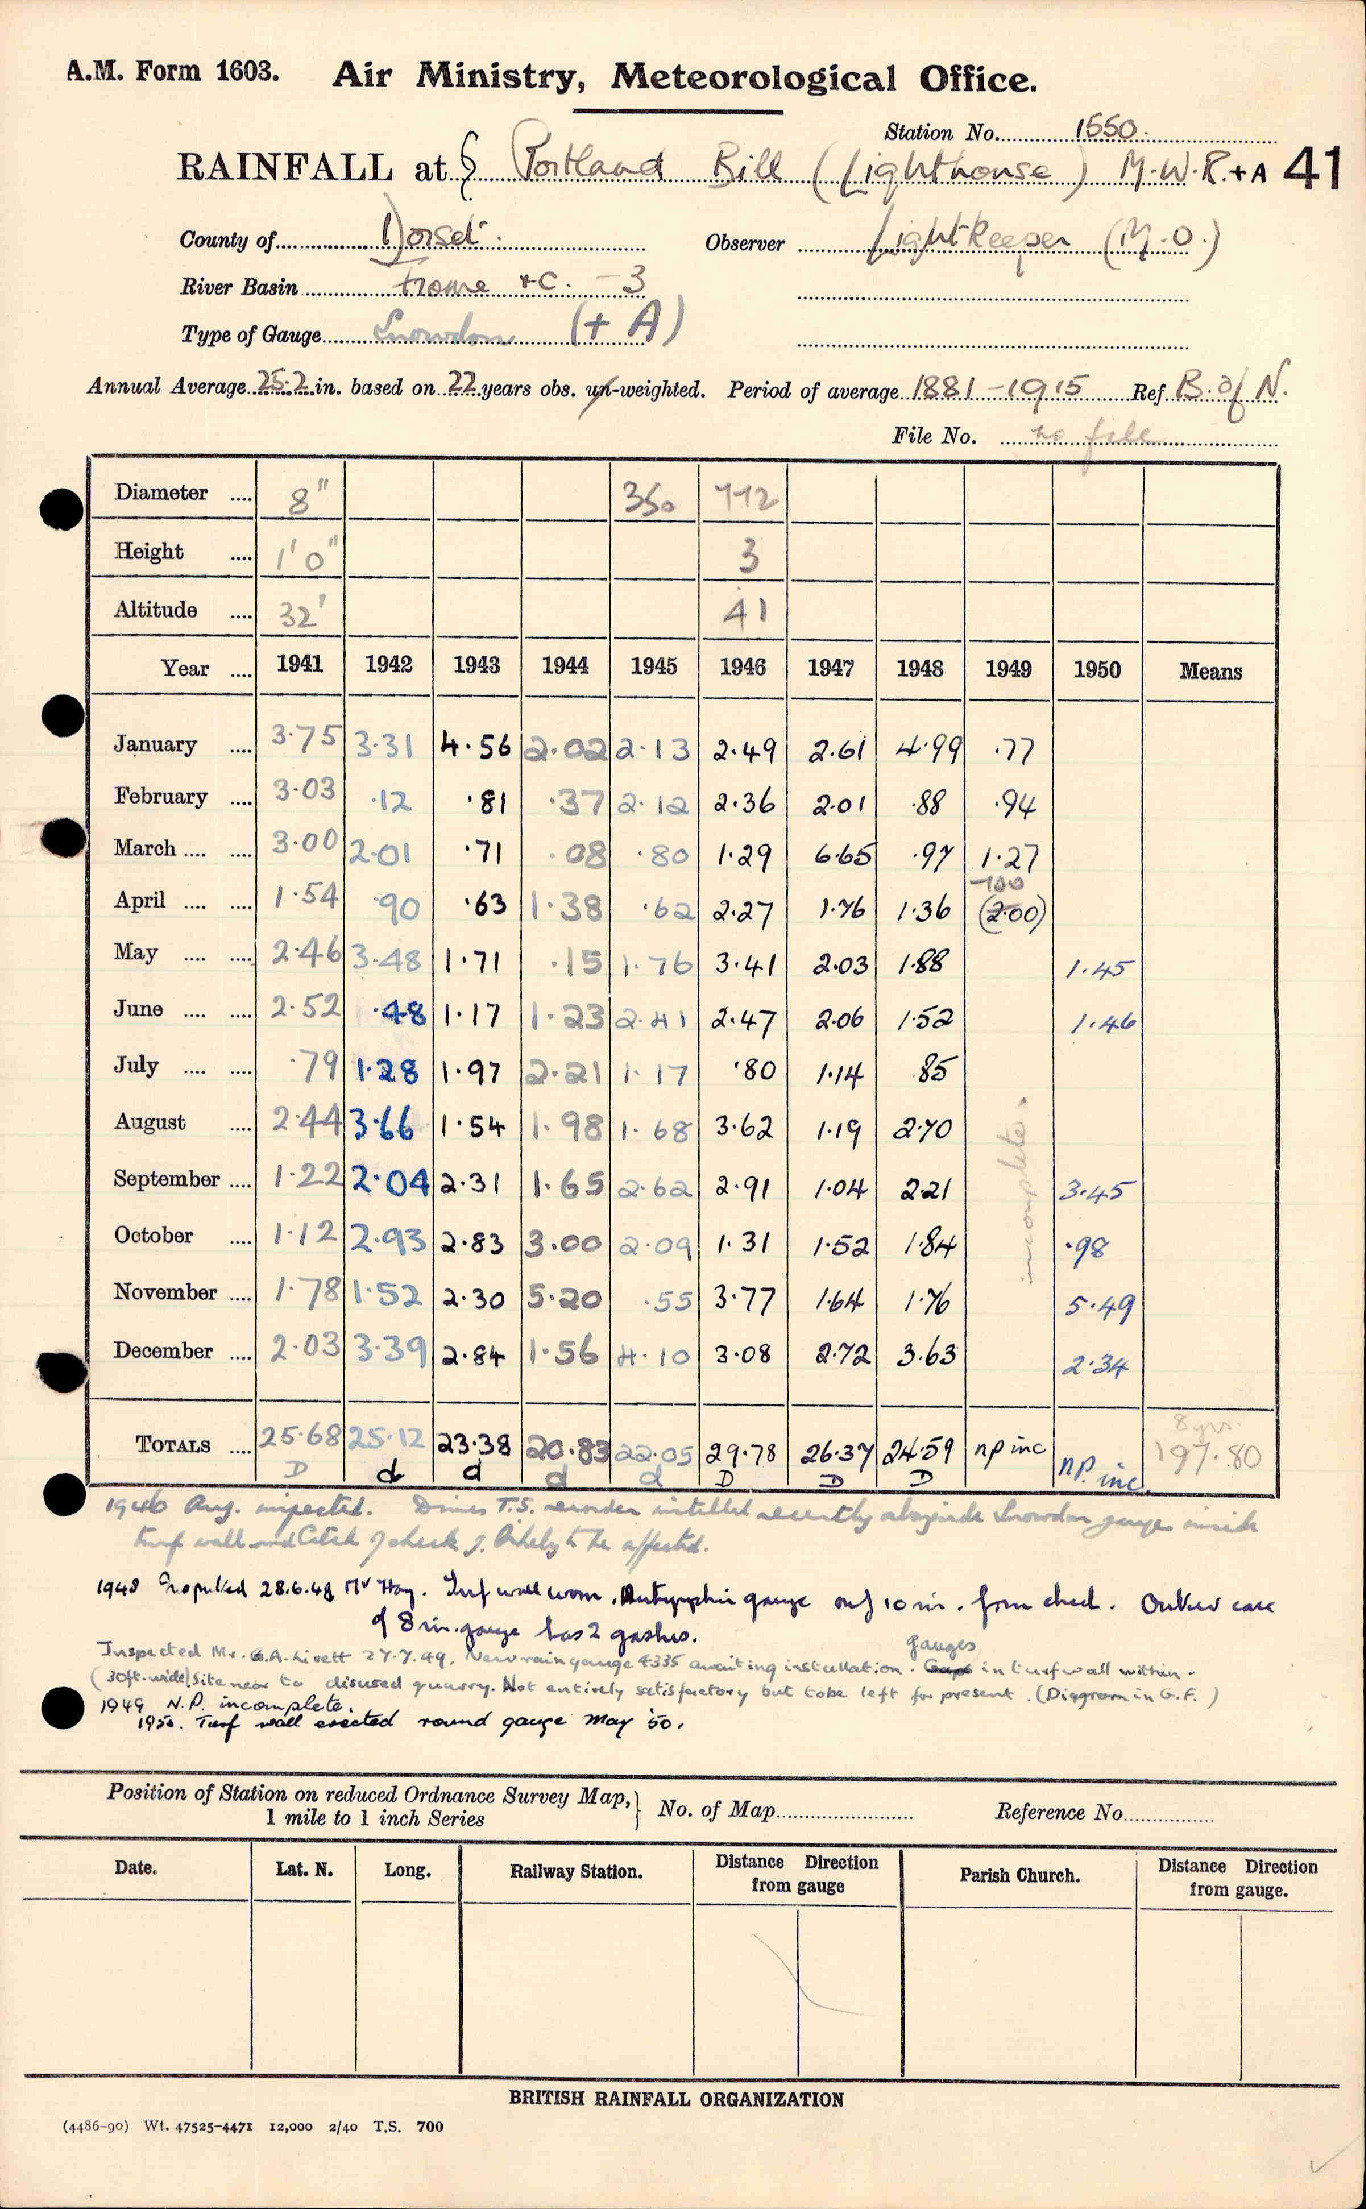 A.M. Form 1603. Air Ministry, Meteorological Office.
Station No. 1550.
RAINFALL at § Portland Bill (Lighthouse) M.W.R. + A 41
County of Dorset. Observer Lightkeeper (M.O.)
River Basin Frome &c. - 3
Type of Gauge Snowdon (+ A)
Annual Average 25.2 in. based on 22 years obs. un-weighted. Period of average 1881-1915 Ref B. of N.
File No. no file
Diameter .... 8" 350 772
Height .... 1'0" 3
Altitude .... 32' 41
Year .... 1941 1942 1943 1944 1945 1946 1947 1948 1949 1950 Means
January .... 3.75 3.31 4.56 2.02 2.13 2.49 2.61 4.99 .77
February .... 3.03 .12 .81 .37 2.12 2.36 2.01 .88 .94
March .... .... 3.00 2.01 .71 .08 .80 1.29 6.65 .97 1.27
April .... .... 1.54 .90 .63 1.38 .62 2.27 1.76 1.36 (2.00)
May .... .... 2.46 3.48 1.71 .15 1.76 3.41 2.03 1.88 1.45
June .... .... 2.52 .48 1.17 1.23 2.41 2.47 2.06 1.52 1.46
July .... .... .79 1.28 1.97 2.21 1.17 .80 1.14 .85
August .... 2.44 3.66 1.54 1.98 1.68 3.62 1.19 2.70
September .... 1.22 2.04 2.31 1.65 2.62 2.91 1.04 2.21 incomplete. 3.45
October .... 1.12 2.93 2.83 3.00 2.09 1.31 1.52 1.84 .98
November .... 1.78 1.52 2.30 5.20 .55 3.77 1.64 1.76 5.49
December .... 2.03 3.39 2.84 1.56 4.10 3.08 2.72 3.63 2.34
8 yrs.
TOTALS .... 25.68 25.12 23.38 20.83 22.05 29.78 26.37 24.59 np inc np. inc. 197.80
D d d d d D D D
1946 Aug. inspected. Dines T.S. recorder installed recently alongside Snowdon gauge inside
turf wall and likely to be affected.
1948 Inspected 28.6.48 Mr Hay. Turf wall worn. Autographic gauge only 10 in. from check. Outer case
of 8 in. gauge has 2 gashes.
Inspected Mr. G.A. Livett 27.7.49. New rain gauge 4335 awaiting installation. gauges in turf wall within
(30ft. wide) Site near to disused quarry. Not entirely satisfactory but to be left for present. (Diagram in G.F.)
1949 N.P. incomplete.
1950. Turf wall erected round gauge May '50.
Position of Station on reduced Ordnance Survey Map, No. of Map Reference No.
1 mile to 1 inch Series
Date. Lat. N. Long. Railway Station. Distance Direction from gauge Parish Church. Distance Direction from gauge.
BRITISH RAINFALL ORGANIZATION
(4486-90) Wt. 47525-4471 12,000 2/40 T.S. 700